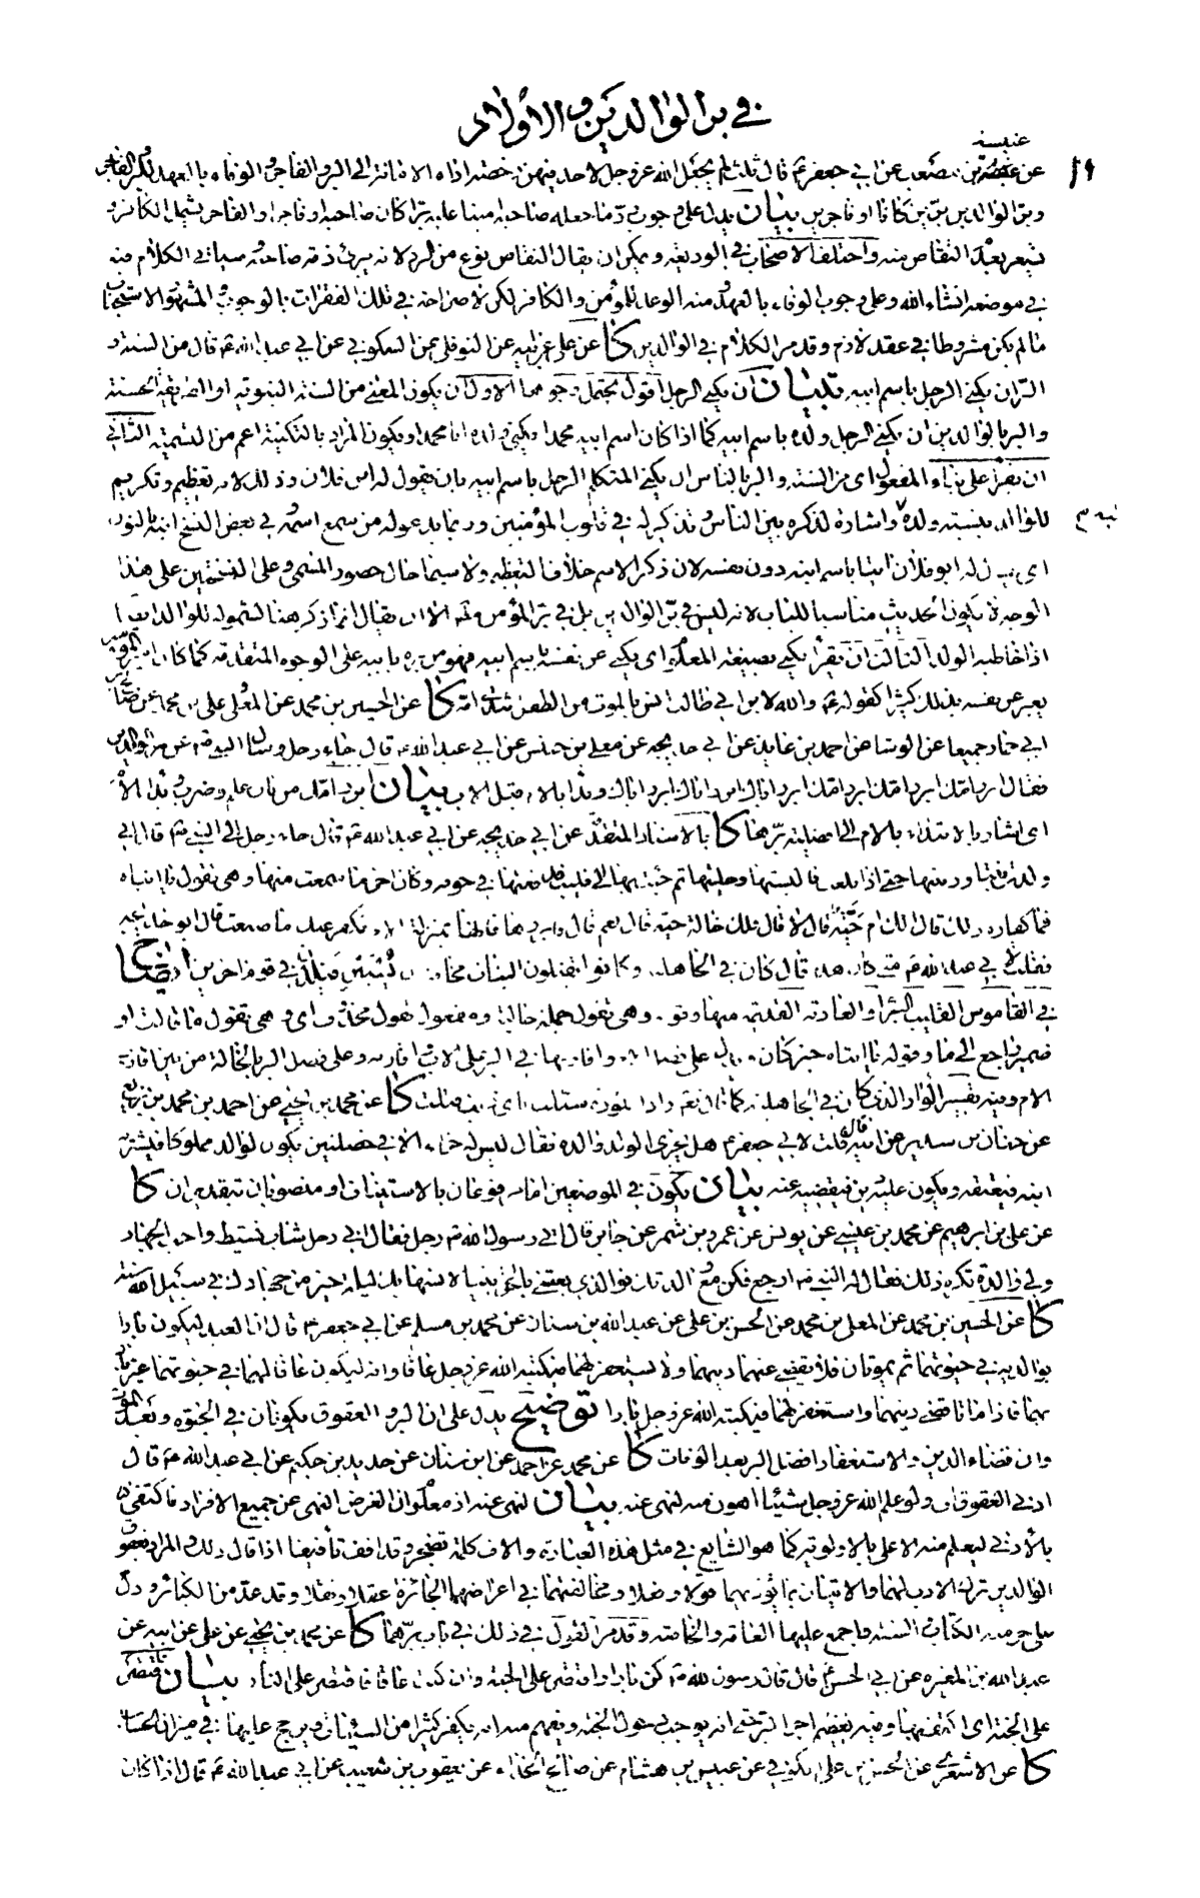 في بر الوالدين والأولاد
عنبسة
١٩
عن عنبسة بن مصعب عن ابي جعفر ع قال ثلث لم يجعل الله عز وجل لاحد فيهن رخصة اداء الامانة الى البر والفاجر والوفاء بالعهد للبر والفاجر
وبر الوالدين برين كانا او فاجرين بيان يدل على وجوب رد ما جعله صاحبه امينا عليه برا كان صاحبه او فاجرا والفاجر يشمل الكافر و
يشعر بعدم التقاص منه واختلف الاصحاب في الوديعة ويمكن ان يقال التقاص نوع من الرد لانه يبرئ ذمة صاحبه وسياتي الكلام فيه
في موضعه انشاء الله وعلى وجوب الوفاء بالعهد ومنه الوعد للمؤمن والكافر لكن لا صراحة في تلك الفقرات بالوجوب والمشهور الاستحباب
ما لم يكن مشروطا في عقد لازم وقد مر الكلام في الوالدين كا عن علي عن ابيه عن النوفلي عن السكوني عن ابي عبد الله ع قال من السنة و
البر ان يكنى الرجل باسم ابيه تبيان ان يكنى الرجل اقول يحتمل وجوها الاول ان يكون المعنى من السنة النبوية او الطريقة الحسنة
والبر بالوالدين ان يكنى الرجل ولده باسم ابيه كما اذا كان اسم ابيه محمدا يكنى ولده ابا محمد او يكون المراد بالتكنية اعم من التسمية الثاني
ان يقرء على بناء المفعول اى من السنة والبر بالناس ان يكنى المتكلم الرجل باسم ابيه بان يقول له ابن فلان وذلك لانه تعظيم وتكريم
للوالد بنسبة ولده اليه واشارة لذكره بين الناس وتذكير له في قلوب المؤمنين وربما يدعو له من سمع اسمه في بعض النسخ ابنه بالنون
اى يقال له ابو فلان اتيا باسم ابنه دون نفسه لان ذكر الاسم خلاف التعظيم ولا سيما حال حضور المسمى وعلى النسختين على هذا
الوجه لا يكون الحديث مناسبا للباب لانه ليس في بر الوالدين بل في بر المؤمن مطلقا الا ان يقال انما ذكر هنا لشموله للوالد ايضا
اذا خاطبه الولد الثالث ان يقرأ يكني بصيغة المعلوم اى يكني عن نفسه باسم ابيه فهو من بره بابيه على الوجوه المتقدمة كما كان امير المؤمنين
يعبر عن نفسه بذلك كثيرا كقوله ع والله لابن ابي طالب انس بالموت من الطفل بثدي امه كا عن الحسين بن محمد عن المعلى وعلي بن محمد عن صالح بن
ابي حماد جميعا عن الوشا عن احمد بن عايذ عن ابي خديجه عن معلى بن خنيس عن ابي عبد الله ع قال جاء رجل وسال النبي ص عن بر الوالدين
فقال ابرر امك ابرر امك ابرر امك ابرر اباك ابرر اباك ابرر اباك وبدأ بالام قبل الاب بيان ابرر امك من باب علم وضرب وبدأ بالأ
اى اشار بالابتداء بالام الى افضلية برها كا بالاسناد المتقدم عن ابي خديجه عن ابي عبد الله ع قال جاء رجل الى النبي ص قال اني
ولدت بنتا وربيتها حتى اذا بلغت فالبستها وحليتها ثم جئت بها الى قليب فدفعتها في جوفه وكان اخر ما سمعت منها وهي تقول يا ابتاه
فما كفارة ذلك قال الك ام حية قال لا قال فلك خالة حية قال نعم قال فابررها فانها بمنزلة الام يكفر عنك ما صنعت قال ابو خديجه
فقلت لابي عبد الله ع متى كان هذا قال كان في الجاهلية وكانوا يقتلون البنات مخافة ان يسبين فيلدن في قوم اخرين ايضاح
في القاموس القليب البئر او العادية القديمة منها وهي تقول جملة حالية ومفعول تقول محذوف اى وهي تقول ما قالت او
ضمير راجع الى ما وقوله يا ابتاه خبر كان ويدل على فضل الام واقاربها في البر على الاب واقاربه وعلى فضل البر بالخالة من بين اقارب
الام وفيه تفسير الوأد الذي كان في الجاهلية كما قال تع واذا الموؤدة سئلت باى ذنب قتلت كا عن محمد بن يحيى عن احمد بن محمد عن محمد بن بزيع
عن حنان بن سدير عن ابيه قال قلت لابي جعفر ع هل يجزى الولد والده فقال ليس له جزاء الا في خصلتين يكون الوالد مملوكا فيشتريه
ابنه فيعتقه ويكون عليه دين فيقضيه عنه بيان يكون في الموضعين اما مرفوعان بالاستيناف او منصوبان بتقدير ان كا
عن علي بن ابرهيم عن محمد بن عيسى عن يونس عن عمرو بن شمر عن جابر قال اتى رسول الله ص رجل فقال اني رجل شاب نشيط واحب الجهاد
ولي والدة تكره ذلك فقال له النبي ص ارجع فكن مع والدتك فوالذي بعثني بالحق نبيا لانسها بك ليلة خير من جهادك في سبيل الله سنة
كا عن الحسين بن محمد عن المعلى بن محمد عن الحسن بن علي عن عبد الله بن سنان عن محمد بن مسلم عن ابي جعفر ع قال ان العبد ليكون بارا
بوالديه في حيوتهما ثم يموتان فلا يقضي عنهما دينهما ولا يستغفر لهما فيكتبه الله عز وجل عاقا وانه ليكون عاقا لهما في حيوتهما غير بار
بهما فاذا ماتا قضى دينهما واستغفر لهما فيكتبه الله عز وجل بارا توضيح يدل على ان البر والعقوق يكونان في الحيوة وبعد الموت
وان قضاء الدين والاستغفار افضل البر بعد الوفات كا عن محمد عن احمد عن ابن سنان عن حديد بن حكيم عن ابي عبد الله ع قال
ادنى العقوق اف ولو علم الله عز وجل شيئا اهون منه لنهى عنه بيان لنهى عنه اذ معلوم ان الغرض النهي عن جميع الافراد فاكتفى
بالأدنى ليعلم منه الاعلى بالاولوية كما هو الشايع في مثل هذه العبارة والاف كلمة تضجر وقد افف تأفيفا اذا قال ذلك والمراد بعقوق
الوالدين ترك الادب لهما والاتيان بما يؤذيهما قولا وفعلا ومخالفتهما في اغراضهما الجائزة عقلا ونقلا وقد عد من الكبائر ودل
على حرمته الكتاب والسنة واجمع عليها العامة والخاصة وقد مر القول في ذلك في باب برهما كا عن محمد بن يحيى عن علي عن ابيه عن
عبد الله بن المغيره عن ابي الحسن ع قال قال رسول الله ص كن بارا واقتصر على الجنة وان كنت عاقا فاقتصر على النار بيان فاقتصر
على الجنة اى اكتف بها وفيه تعظيم اجر البر حتى انه يوجب دخول الجنة ويفهم منه انه يكفر كثيرا من السيئات ويرجح عليها في ميزان الحساب
كا عن الاشعري عن الحسن بن علي الكوفي عن عبيس بن هشام عن صالح الحذاء عن يعقوب بن شعيب عن ابي عبد الله ع قال اذا كان